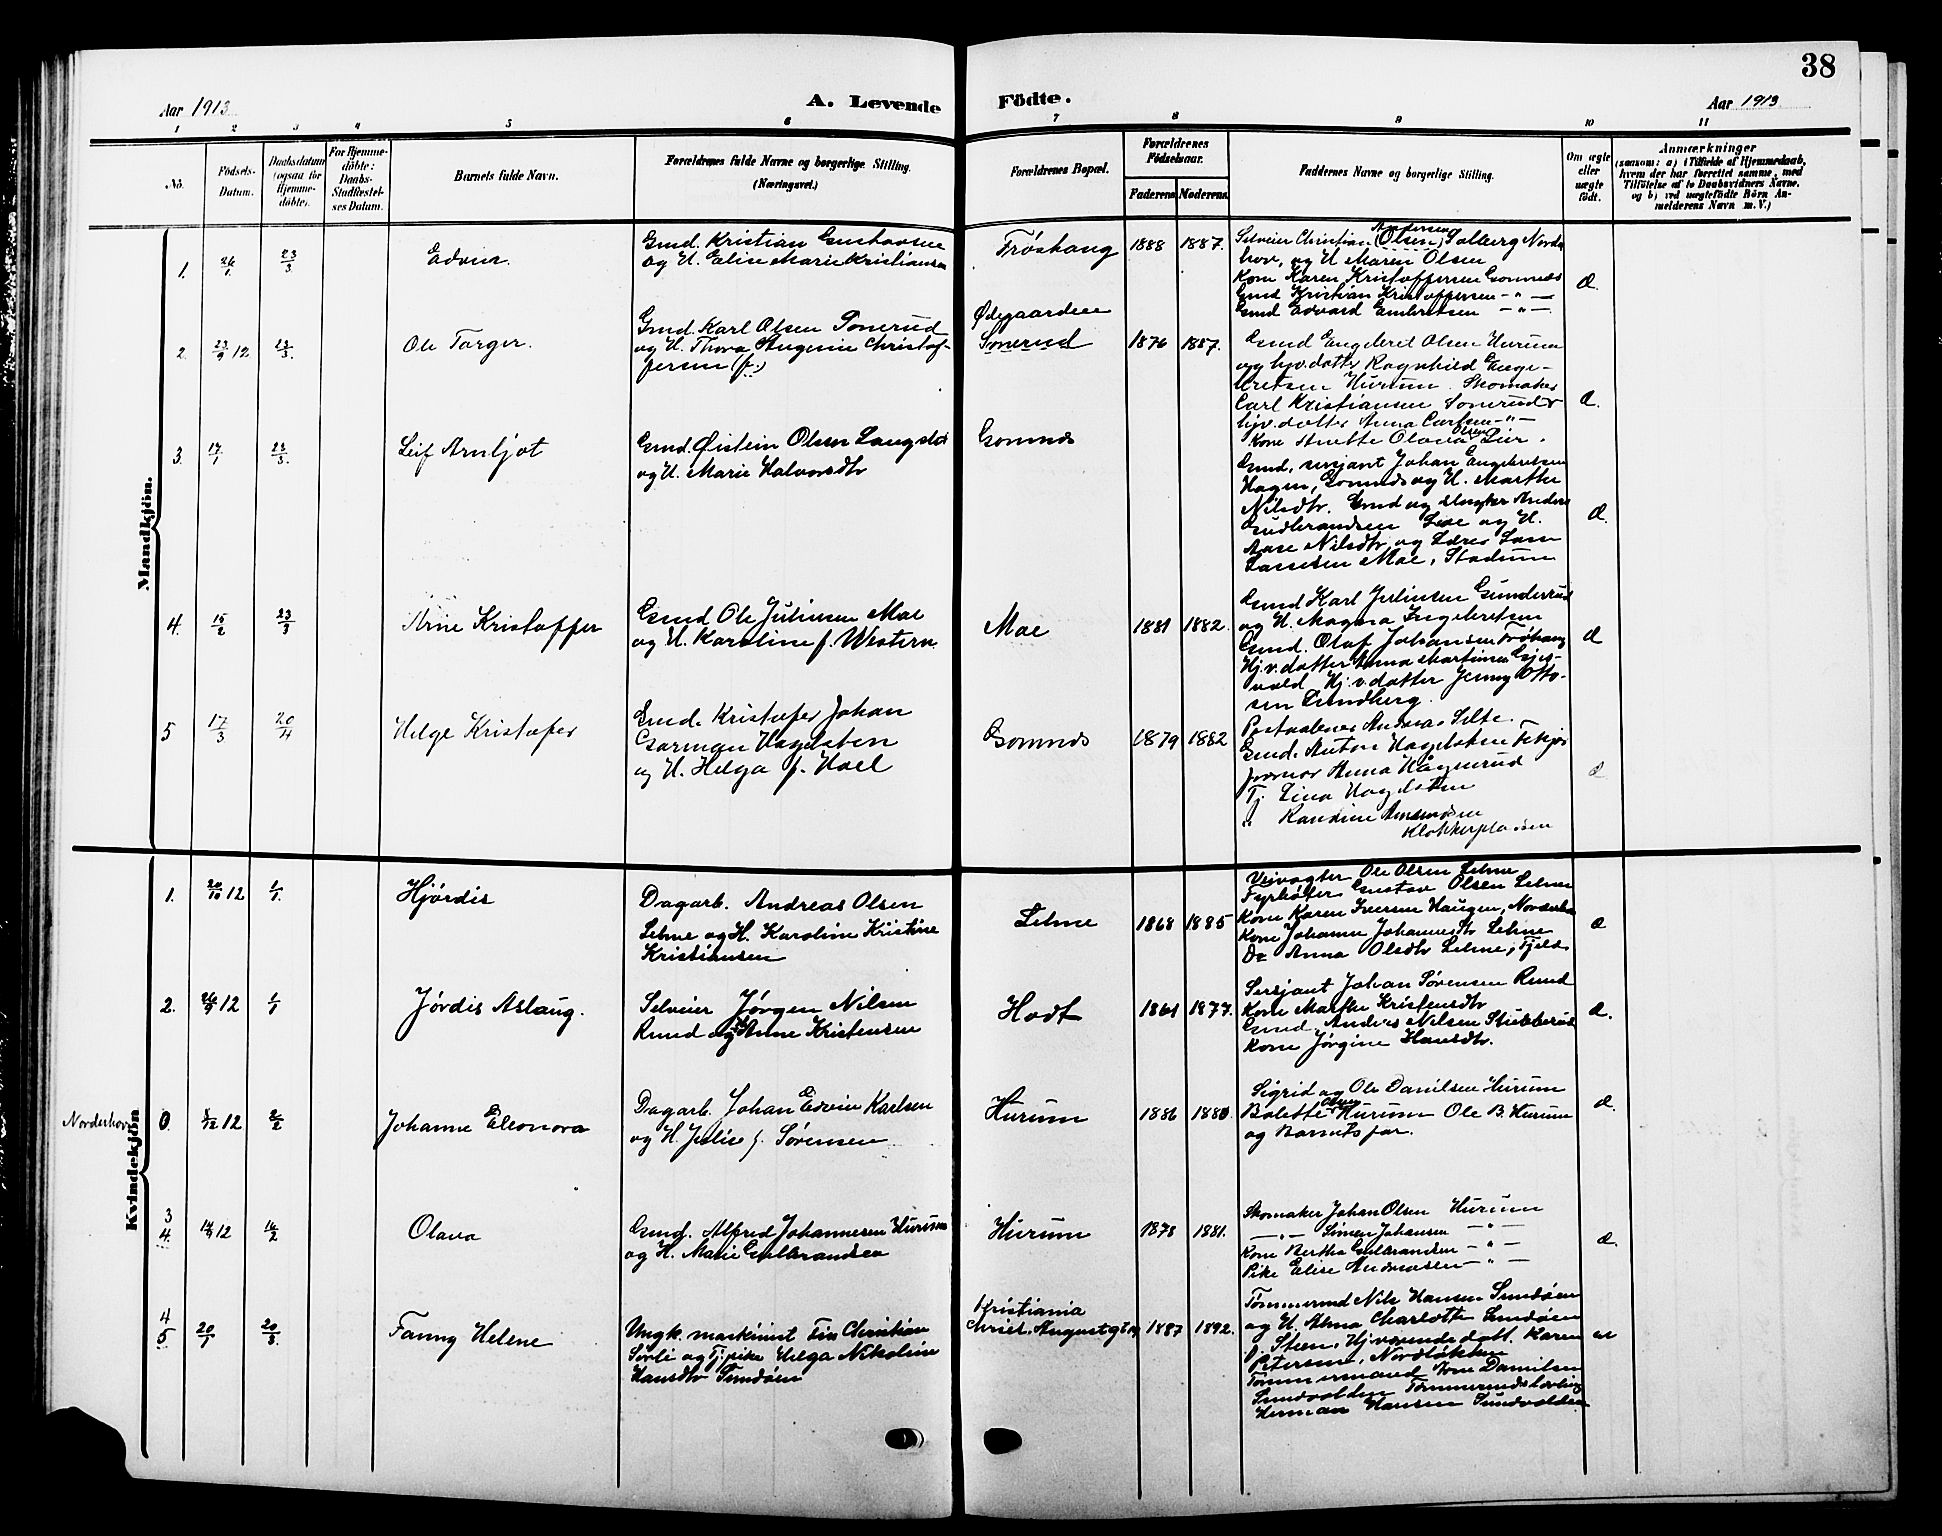 38
Aar 1913
A. Levende
Födte.
Aar 1913
1
2
3
4
5
6
7
8
9
10
11
No.
Födsels-
Datum.
Daabsdatum
(ogsaa for
Hjemme-
döbte).
For Hjemme-
döbte:
Daabs-
Stadfæstel-
ses Datum.
Barnets fulde Navn.
Forældrenes fulde Navne og borgerlige Stilling.
(Næringsvei.)
Forældrenes Bopæl.
Forældrenes
Födselsaar.
Faderens
Moderens
Faddernes Navne og borgerlige Stilling.
Om ægte
eller
uægte
födt.
Anmærkninger
(saasom: a) i Tilfælde af Hjemmedaab,
hvem der har forrettet samme, med
Tilföielse af to Daabsvidners Navne,
og b) ved uægtefödte Börn An-
melderens Navn m. V.)
Mandkjön.
1. 26/1 23/3 Edvin. Gmd. Kristian Gustavsen
og H. Elise Marie Kristiansen
Frøshaug 1888 1887.
Andersen
Selveier Christian (Olsen) Solberg Norder
hov, og H Maren Olsen
Kone Karen Kristoffersen Gomnæs
Gmd Kristian Kristoffersen -"-
Gmd Edvard Embretsen -"-
Æ.
2. 23/9 12 23/3. Ole Torger. Gmd. Karl Olsen Sonerud
og H. Thora Augenie Christof-
fersen (f.)
Ødegaarden
Sonerud 1876 1887.
Gmd Engebret Olsen Hurum
og hjv. datter Ragnhild Enge-
bretsen Hurum. Skomaker
Carl Kristiansen Sonerud
hjv. datter Anna Carlsen -"-
Kone Anette Olava Olsen Lier.
Æ.
3. 17/1 23/3. Leif Arnljot Gmd. Øistein Olsen Langslet
og H. Marie Halvorsdtr
Gomnæs
Gmd, sersjant Johan Engebretsen
Hagen, Gomnæs og H. Marthe
Nilsdtr. Gmd og slagter Anders
Gudbrandsen Lie og H.
Aase Nilsdtr og Lærer Lars
Larsesen Moe, Stadum
Æ.
4. 15/2 23/3 Arne Kristoffer Gmd Ole Juliusen Moe
og H. Karoline f. Western.
Moe 1881 1882.
Gmd Karl Juliusen Gunderud
og H. Magna Ingebretsen
Gmd. Olaf Johansen Frøhaug
Hj.v. datter Anna Martinsen Gjes-
vold Hj.v. datter Jenny Otto-
sen Lundberg.
Æ
5 17/3 20/4 Helge Kristofer Gmd. Kristofer Johan
Gorman Hagelsten
og H. Helga f. Hoel
Gomnæs 1879 1882
Postaabner Andreas Selte.
Gmd. Anton Hagelsten
Anna Hågenrud
Tj. Lina Hagelsten
" Randine Amundsen
Klokkerplassen
Æ
Kvindekjön
1. 20/10 12 1/1. Hjørdis Dagarb. Andreas Olsen
Lehne og H. Karoline Kristine
Kristiansen
Lehne 1868 1885
Veivogter Ole Olsen Lehne
Fyrbøter Gustav Olsen Lehne
Kone Karen Iversen Haugen, Norderhov
Kone Johanne Johannesdtr Lehne
Do Anna Olsdtr Lehne,
Æ
2. 26/9 12 1/1 Jørdis Aslaug. Selveier Jørgen Nilsen
Rund og H. Anne Kristensen
Hodt 1861 1877.
Sersjant Johan Sørensen Rund
Kone Marthe Kristensdtr
Gmd Anders Nilsen Stubberud
Kone Jørgine Hansdtr.
Æ.
Norderhov
0. 8/12 12 2/2 Johanne Eleonora Dagarb. Johan Edvin Karlsen
og H. Julie f. Sørensen
Hurum 1886 1880
Sigrid og Ole Danilsen Hurum
Bolette Olsen Hurum Ole B. Hurum
og Barnets far.
Æ.
3
4. 14/9 12 16/2 Olava Gmd. Alfred Johannesen Hurum
og H. Marie Gulbrandsen
Hurum 1878 1881.
Skomaker Johan Olsen Hurum
-"- Simen Johansen -"-
Kone Bertha Gulbrandsen -"-
Pike Elise Andreasen -"-
Æ.
4
5 20/1 20/3 Fanny Helene Ungk. maskinist Fin Christian
Sørli og Tj.pike Helga Nikoline
Hansdtr Sundøen
Kristiania
Christ. Augustgt 19 1887 1892.
Tømmermd Nils Hansen Sundøen
og H. Anna Charlotte Sundøen
f. Steen, Hj.værende datt. Karen
Petersen, Nordløkken
Tømmermand Arne Danielsen
Sundvolden Tømmermdslærling
Herman Hansen Sundvolden
u